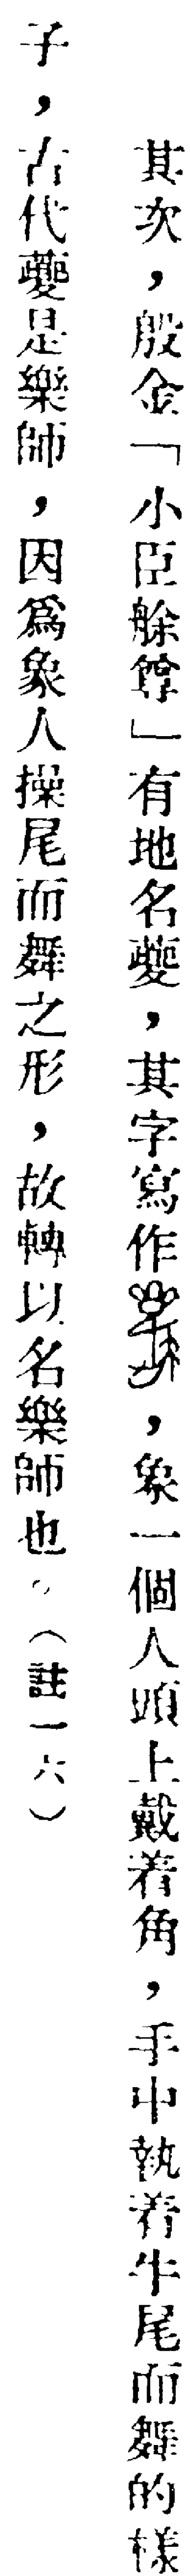 其次，殷金「小臣艅𨡭」有地名夔，其字寫作，象一個人頭上戴着角，手中執着牛尾而舞的樣
子，古代夔是樂師，因爲象人操尾而舞之形，故轉以名樂師也。（註一六）